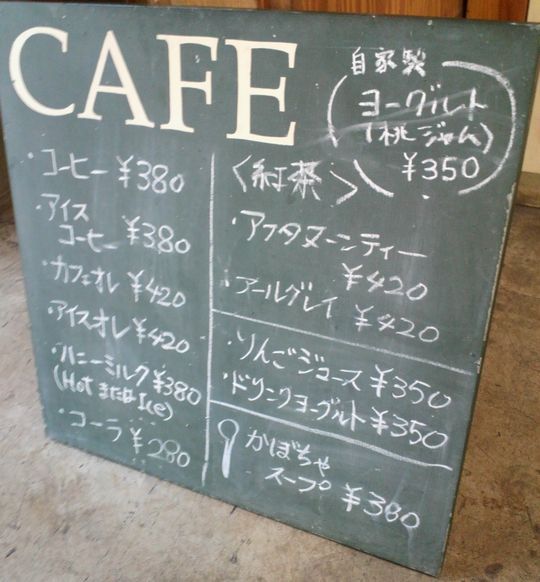 CAFE
・コーヒー ¥380
・アイス
コーヒー ¥380
・カフェオレ ¥420
・アイスオレ ¥420
・ハニーミルク ¥380
(Hot または Ice)
・コーラ ¥280
自家製
ヨーグルト
(桃ジャム)
¥350
〈紅茶〉
・アフタヌーンティー
¥420
・アールグレイ
¥420
・りんごジュース ¥350
・ドリンクヨーグルト ¥350
かぼちゃ
スープ ¥380